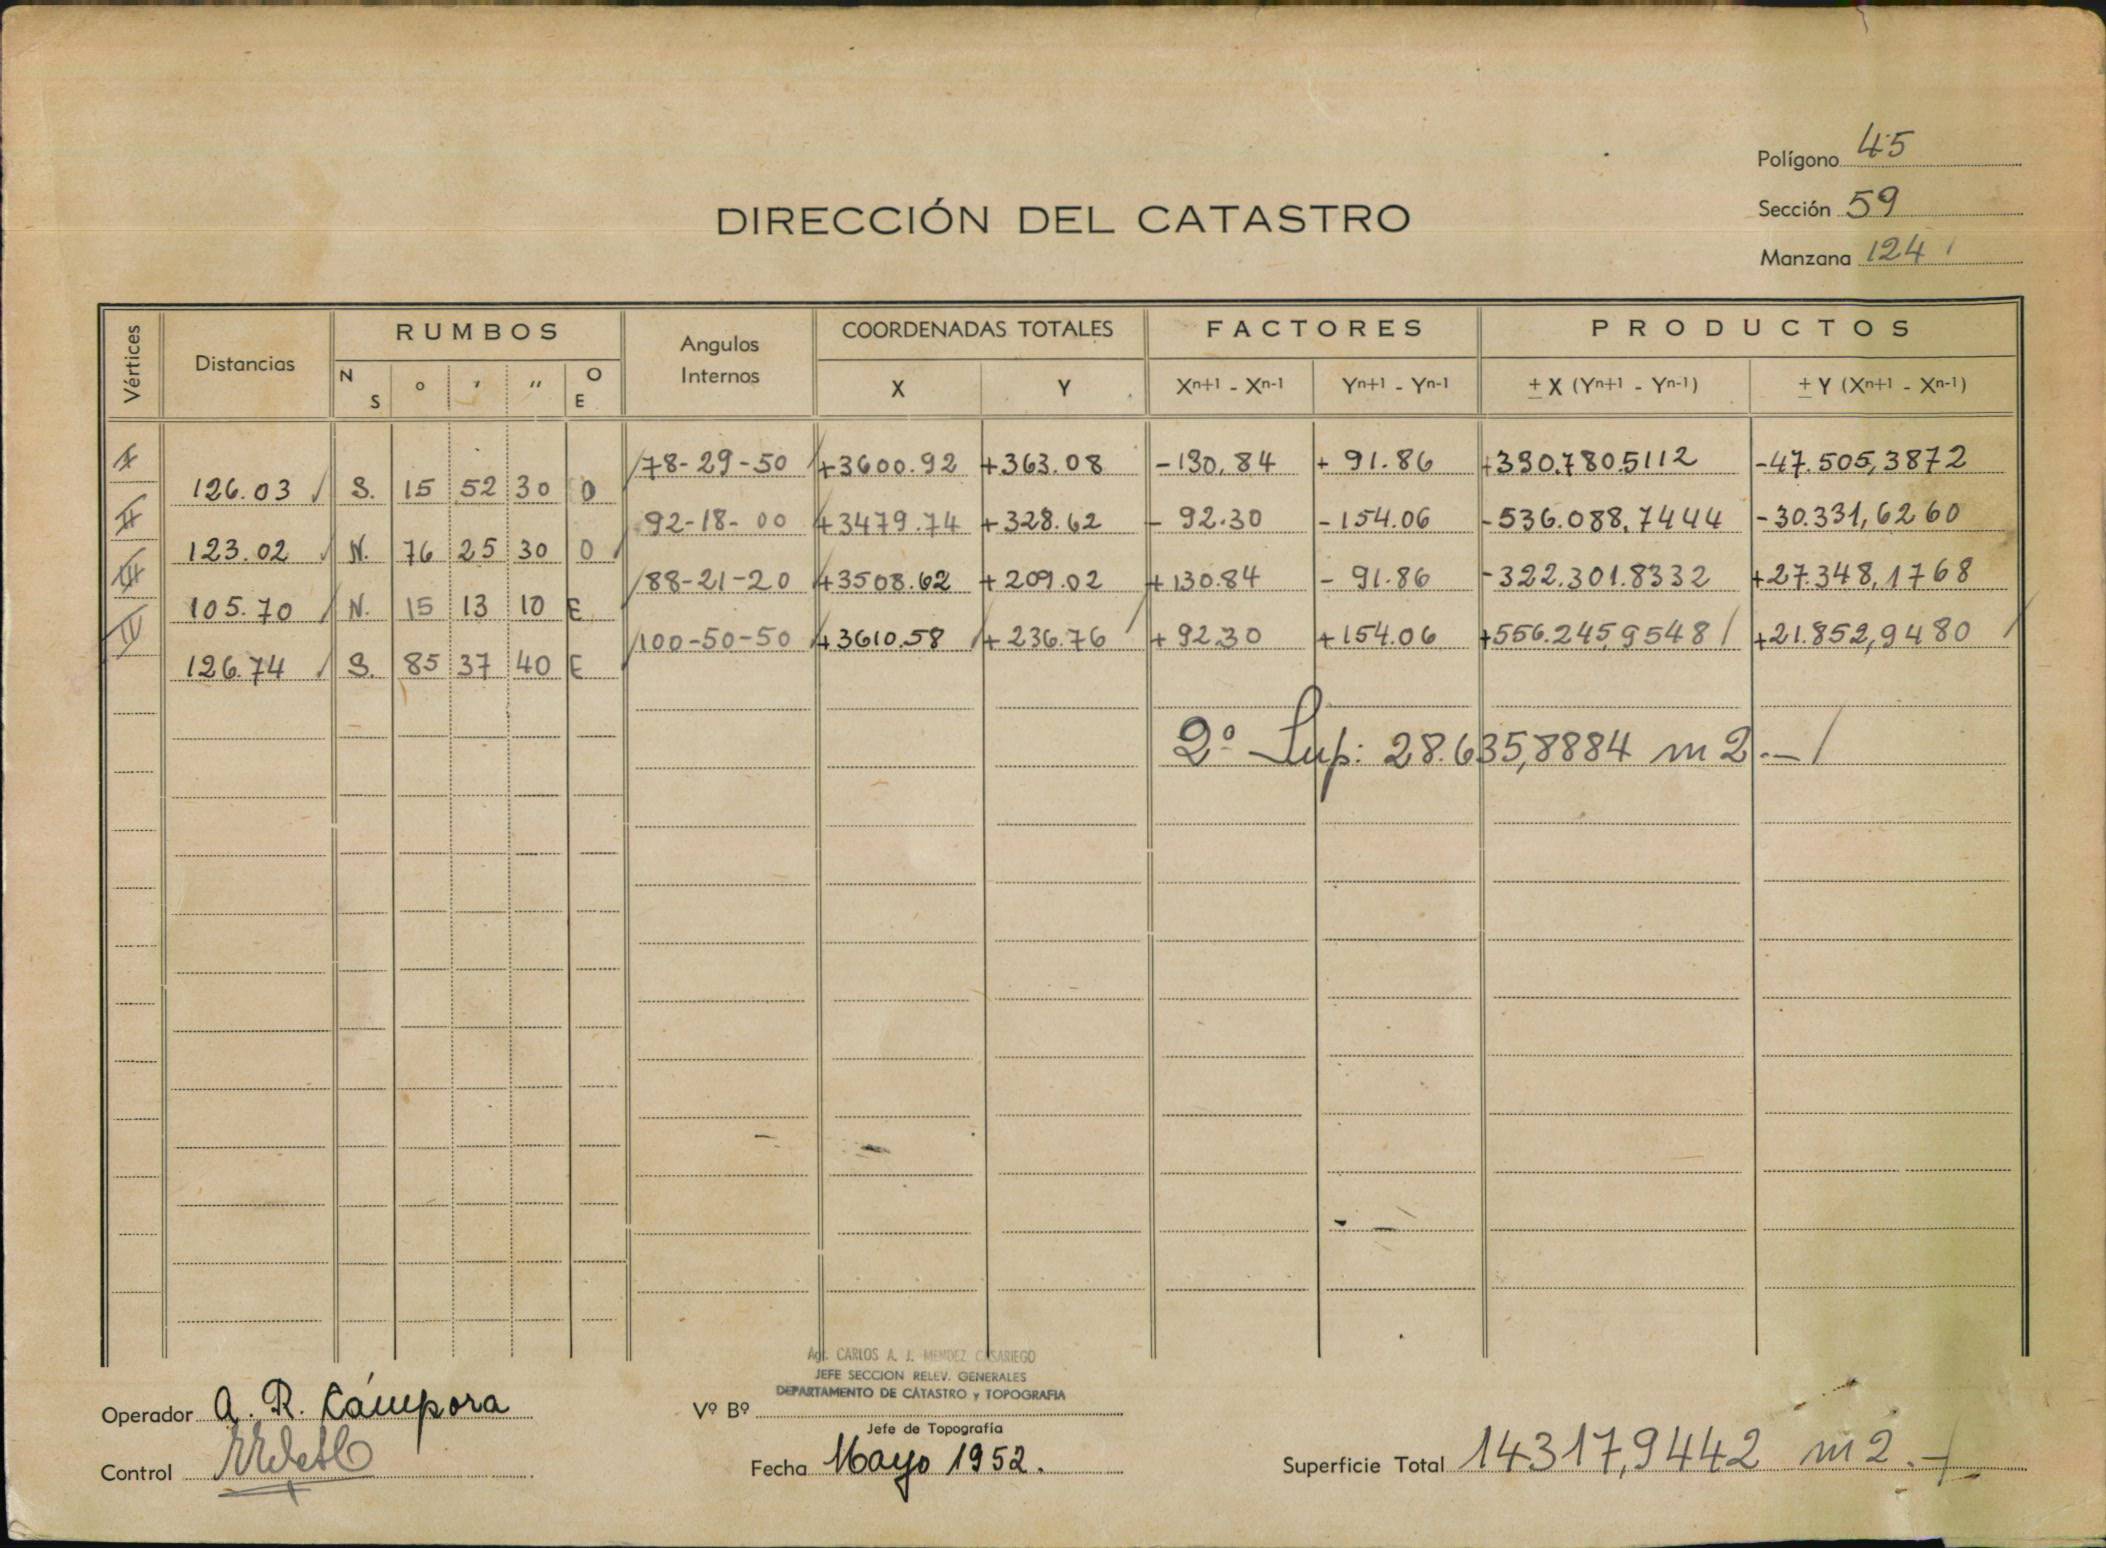 Polígono 45
Sección 59
Manzana 124
DIRECCIÓN DEL CATASTRO
Vértices Distancias RUMBOS Angulos Internos COORDENADAS TOTALES FACTORES PRODUCTOS
N S ° ' " O E X Y Xn+1 - Xn-1 Yn+1 - Yn-1 ± X (Yn+1 - Yn-1) ± Y (Xn+1 - Xn-1)
I 78-29-50 +3600.92 +363.08 -130.84 + 91.86 +330.780.5112 -47.505,3872
126.03 S. 15 52 30 O
II 92-18-00 +3479.74 +328.62 - 92.30 -154.06 -536.088,7444 -30.331,6260
123.02 N. 76 25 30 O
III 88-21-20 +3508.62 +209.02 +130.84 - 91.86 -322.301.8332 +27.348,1768
105.70 N. 15 13 10 E
IV 100-50-50 +3610.58 +236.76 +92.30 +154.06 +556.245,9548 +21.852,9480
126.74 S. 85 37 40 E
2º Sup: 28.635,8884 m2.-
Agr. CARLOS A. J. MENDEZ CASARIEGO
JEFE SECCION RELEV. GENERALES
DEPARTAMENTO DE CATASTRO y TOPOGRAFIA
Operador A. R. Cámpora
Vº Bº
Jefe de Topografía
Control
Fecha Mayo 1952.
Superficie Total 14317,9442 m2.-